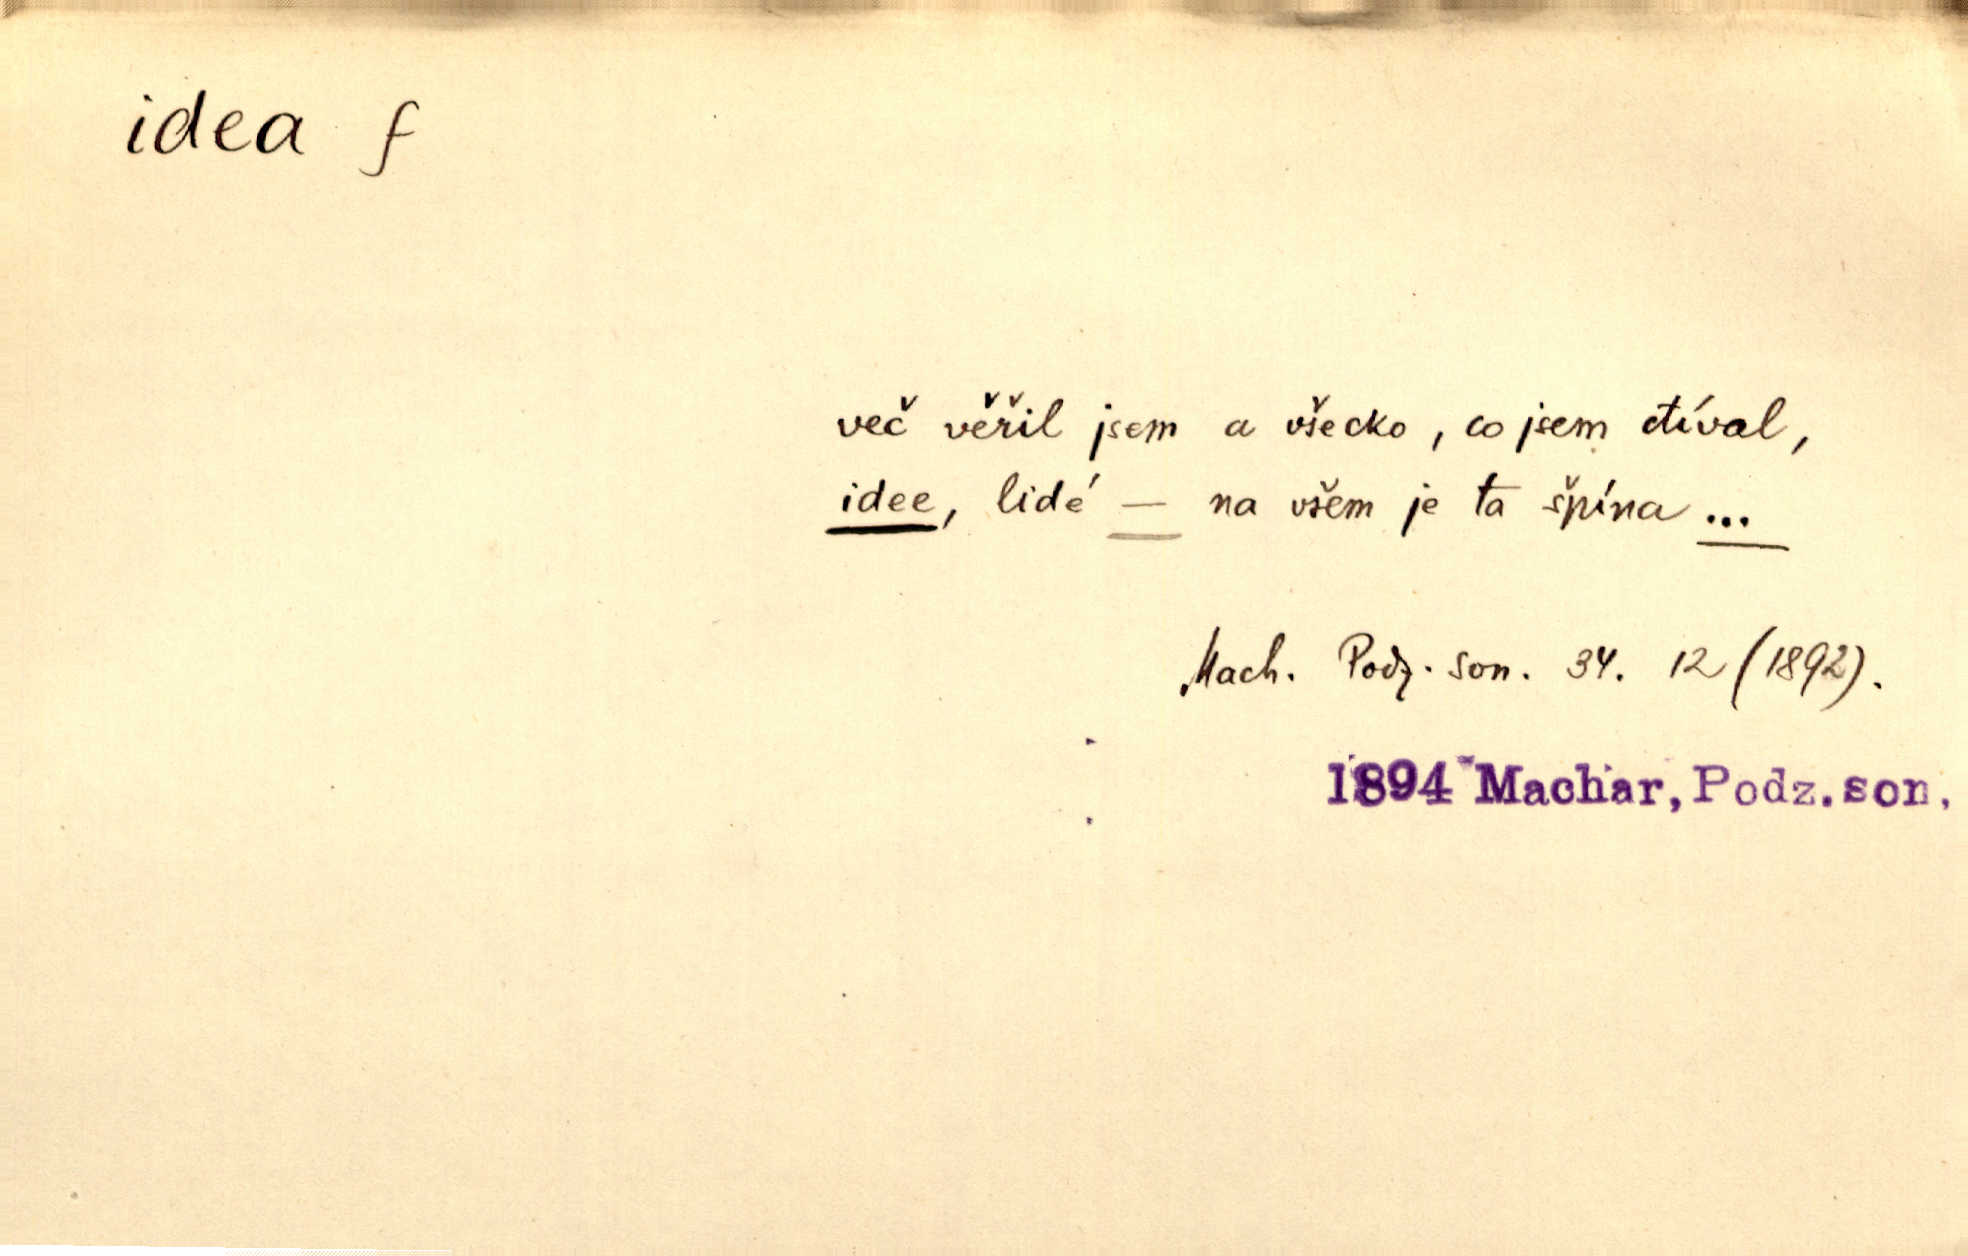 idea f
več věřil jsem a všecko, co jsem ctíval,
idee, lidé — na všem je ta špína ...
Mach. Podz. son. 34. 12 (1892).
1894 Machar, Podz. son.